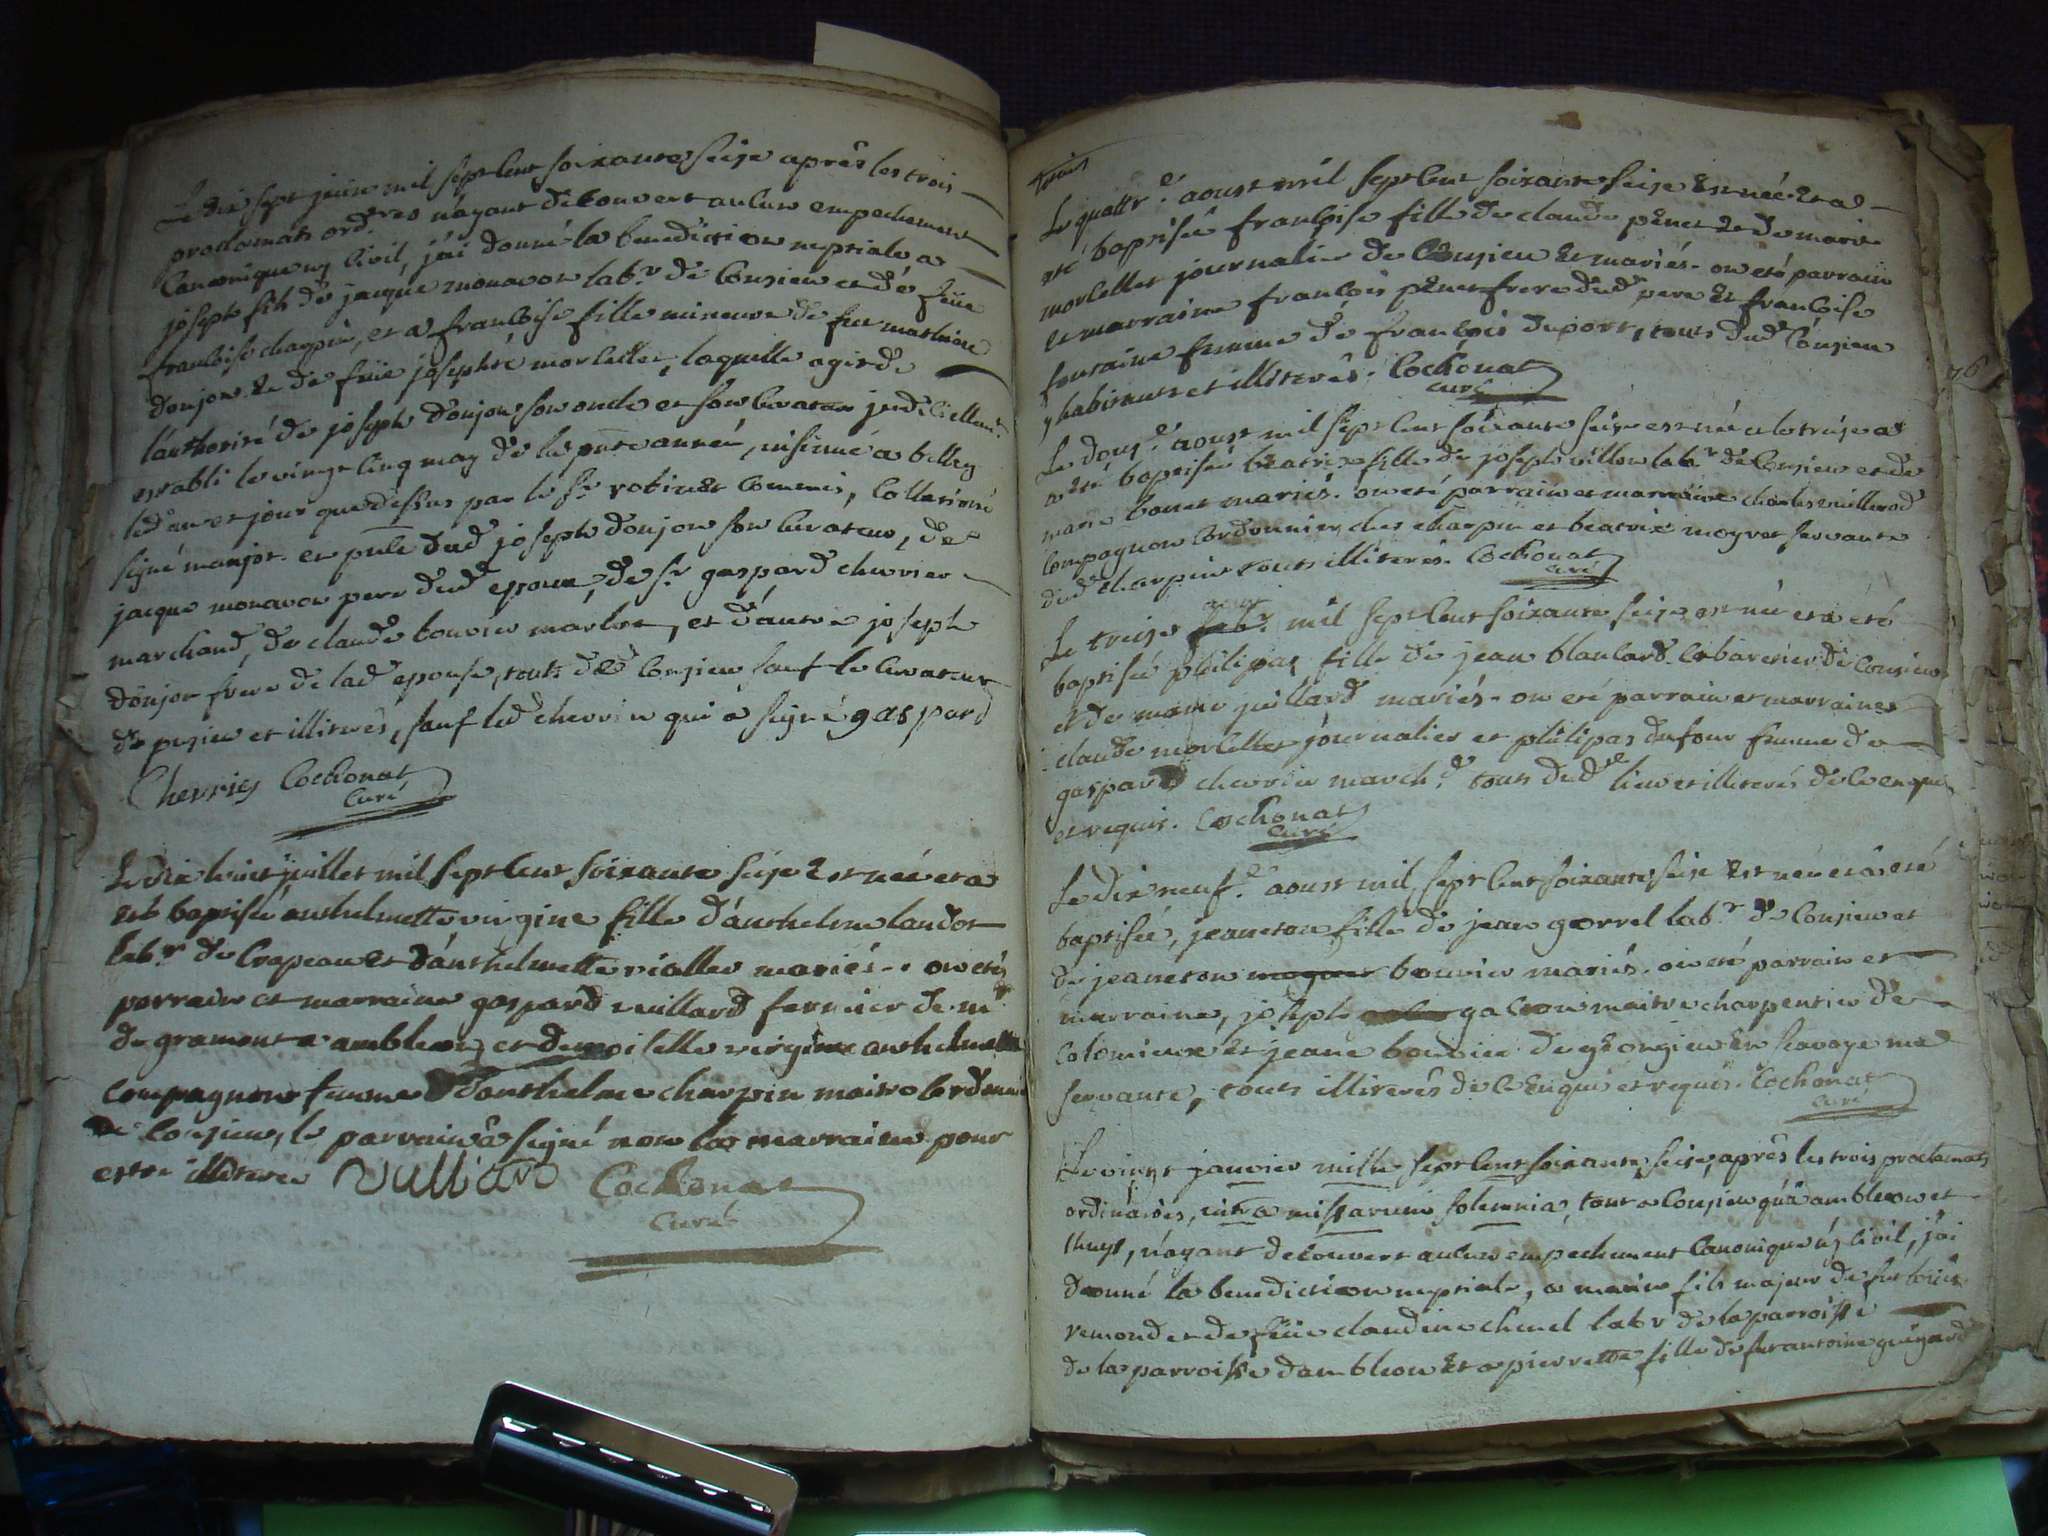 Le dix sept juin mil sept cent soixante seize après les trois
proclamats ord.res n'ayant découvert aulcun empechement
canonique ny civil, j'ai donné la benediction nuptiale a
joseph fils de jacque monavon lab.r de Conzieu et de feüe
francoise charpin, et a francoise fille mineure de feu mathieu
donjon et de feüe josephte morlettet, laquelle agit de
l'authorité de joseph donjon son oncle et son curateur judiciellem.t
establi le vingt cinq may de la pnte année, insinué a belley
led an et jour que dessus par le s.r robin et commis, collationé
signé manjot. en pnce dud joseph donjon son curateur, de
jacque monavon pere dud epoux, de s.r gaspard chevrier
marchand, de claude bouvier , et d'autre joseph
donjon frere de lad epouse, touts de Conzieu sauf le curateur
de et illiterés, sauf led chevrier qui a signé gaspard
Chevrier Cochonat
curé
Le dix huit juillet mil sept cent soixante seize est née et a
eté baptisée anthelmette virgine fille d'anthelme landot
lab.r de Crapeau et d'anthelmette vialle mariés. on eté
parrain et marraine gaspard vuillard fermier de m.r
de gramont a ambleon, et demoiselle virgine anthelmette
compagnon femme d'anthelme charpin maitre cordonnier
de Conzieu, le parrain a signé non la marraine pour
estre illiterée Vulliard Cochonat
curé
Le quattr.e aoust mil sept cent soixante seize est née et a
eté baptisée francoise fille de claude penet et de marie
morlettet journalier de Conzieu et mariés. on eté parrain
et marraine françois penet frere dud pere et francoise
fontaine femme de françois duport, touts dud Conzieu
y habitants et illiterés. Cochonat
curé
76
Le douz.e aoust mil sept cent soixante seize est née et le treize a
eté baptisée beatrix fille de joseph villon lab.r de Conzieu et de
marie bonet mariés. on eté parrain et marraine charles vuillerod
compagnon cordonnier ches charpin et beatrix moyret servante
dud charpin touts illiterés. Cochonat
curé
aoust
Le treize mil sept cent soixante seize est née et a eté
baptisée philipaz fille de jean blanlard cabaretier de Conzieu
et de marie juillard mariés. on eté parrain et marraine
claude morlettet journalier et philipas dufour femme de
gaspard chevrier march.d touts dud lieu et illiterés de ce enquis
et requis. Cochonat
curé
Le dix neuf.e aoust mil sept cent soixante seize est née et a eté
baptisée, jeaneton fille de jean gorrel lab.r de Conzieu et
de jeaneton bouvier mariés. on eté parrain et
marraine, joseph galloni maitre charpentier de
Colomieux et jeane bouvier de yeongieu en Savoye ma
servante, touts illiterés de ce enquis et requis. Cochonat
curé
Le vingt janvier mille sept cent soixante seize, après les trois proclamats
ordinaires, intra missarum solemnia, tant a Conzieu qu'a ambleon et
thuys, n'ayant découvert aulcun empechement canonique ny civil, j'ai
donné la benediction nuptiale, a marin fils majeur de feu loüis
remond et de feüe claudine chenel lab.r de la parroisse
de la parroisse d'ambleon et a pierrette fille de feu antoine guigard